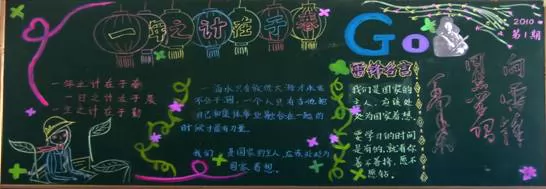 一年之计在于春
Go
2010
第1期
一年之计在于春
一日之计在于晨
一生之计在于勤
一滴水只有放进大海才永远
不会干涸,一个人只有当他把
自己和集体事业融合在一起的
时候才最有力量。
我们是国家的主人,应该处处为
国家着想。
雷锋名言
我们是国家的
主人,应该处
处为国家着想
要学习的时间
是有的,就看你
善不善挤,愿不
愿钻。
向雷锋
同志学习
毛泽东